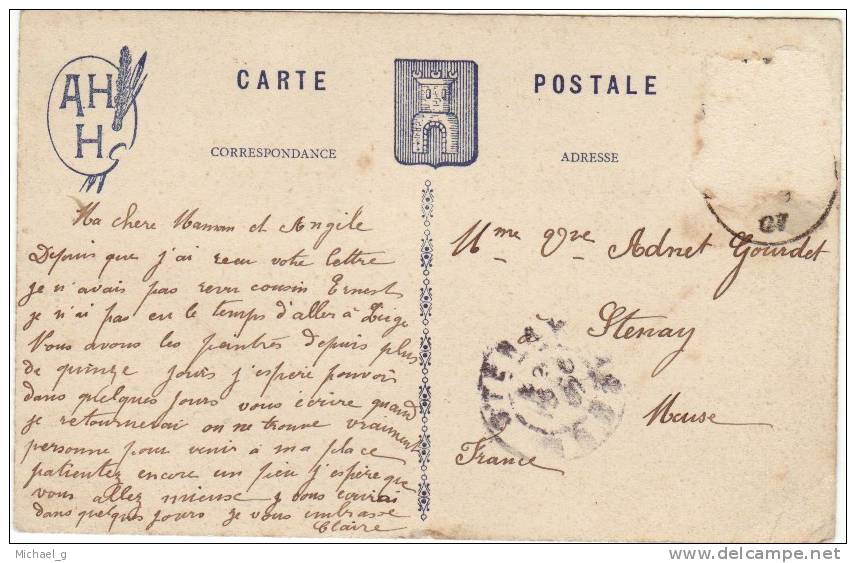 AH
H
CARTE POSTALE
CORRESPONDANCE ADRESSE
Ma chere Maman et Angèle
Depuis que j'ai recu votre lettre
je n'avais pas revu cousin Ernest
je n'ai pas eu le temps d'aller à Liège
Nous avons les peintres depuis plus
de quinze jours j'espère pouvoir
dans quelques jours vous écrire quand
je retournerai on ne trouve vraiment
personne pour venir à ma place
patientez encore un peu j'espère que
vous allez mieux je vous écrirai
dans quelques jours je vous embrasse
Claire
Mme Vve Adnet Gourdet
à Stenay
Meuse
France
07
STENAY
MEUSE
Michael_g
delcampe.net